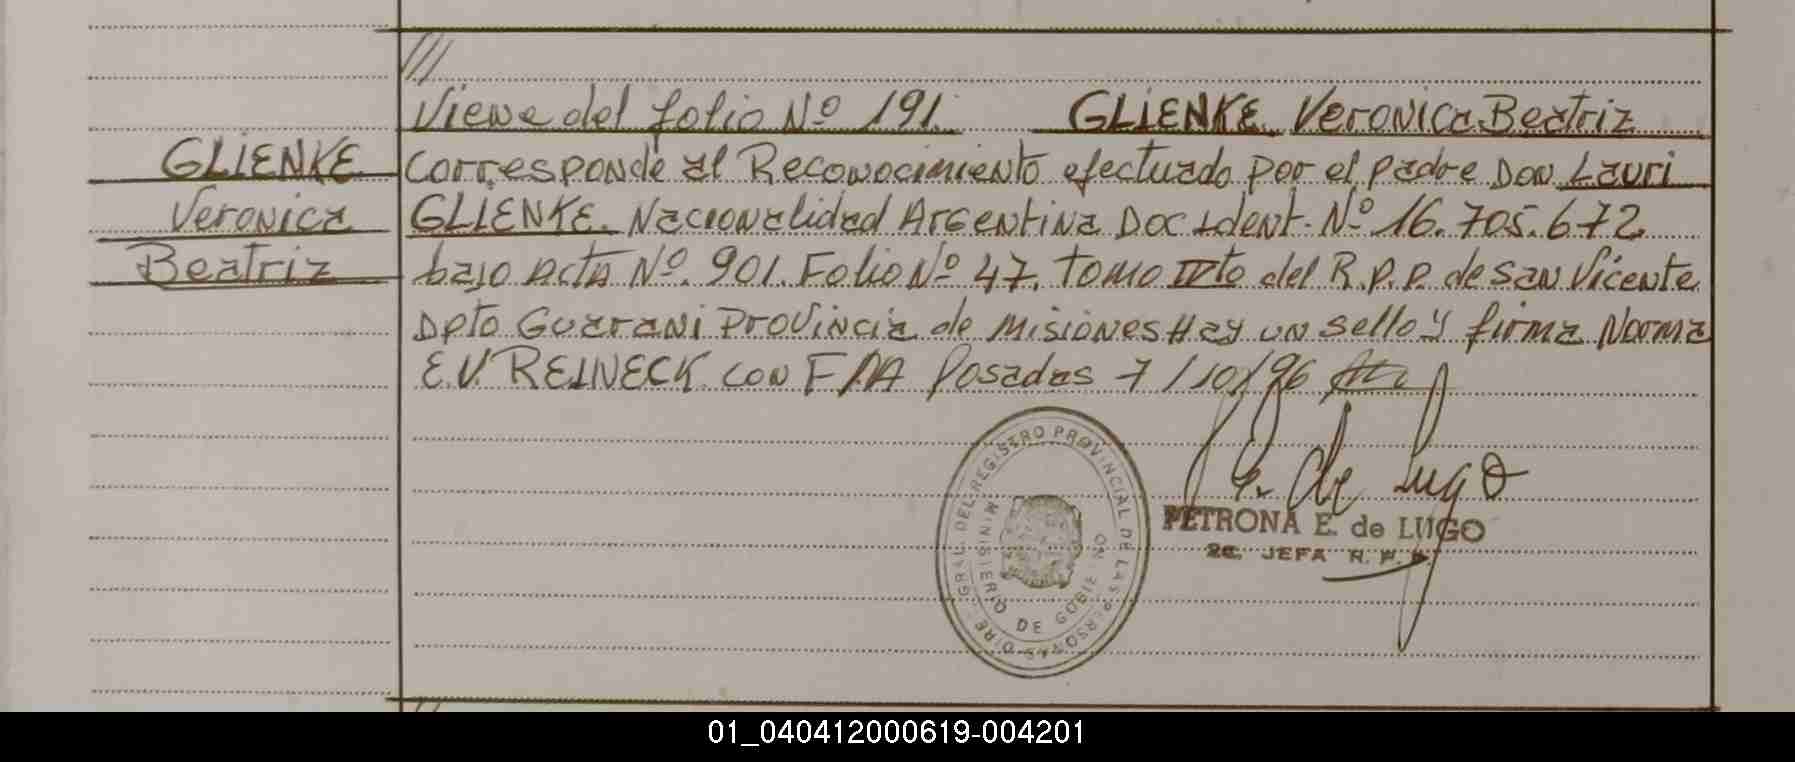 ///
Viene del folio Nº 191. GLIENKE Veronica Beatriz
GLIENKE
Veronica
Beatriz
corresponde al Reconocimiento efectuado por el padre Don Lauri
GLIENKE. Nacionalidad Argentina Doc Ident. Nº 16.705.672
bajo Acta Nº. 901. Folio Nº 47. tomo IVto del R.P.P. de San Vicente
Dpto Guarani Provincia de Misiones Hay un sello y firma Norma
E.V. REINECK con F Posadas 7/10/96
DIRE. GRAL. DEL REGISTRO PROVINCIAL DE LAS PERSONAS
MINISTERIO DE GOBIERNO
P. E. de Lugo
PETRONA E. de LUGO
2C. JEFA R. P. P.
01_040412000619-004201